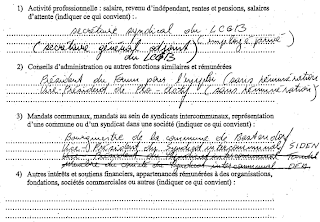 1) Activité professionnelle : salaire, revenu d'indépendant, rentes et pensions, salaires
d'attente (indiquer ce qui convient) :.
secrétaire syndical du LCGB
(secrétaire général adjoint (employé privé)
du LCGB
2) Conseils d'administration ou autres fonctions similaires et rémunérées
Président du Forum pour l'emploi (sans rémunération)
Vice-Président de (sans rémunération)
3) Mandats communaux, mandats au sein de syndicats intercommunaux, représentation
d'une commune ou d'un syndicat dans une société (indiquer ce qui convient) :
Bourgmestre de la commune de Bastendorf
Vice-Président du Syndicat intercommunal SIDEN
Membre du comité du Syndicat intercommunal DEA
4) Autres intérêts et soutiens financiers, appartenances rémunérées à des organisations,
fondations, sociétés commerciales ou autres (indiquer ce qui convient) :